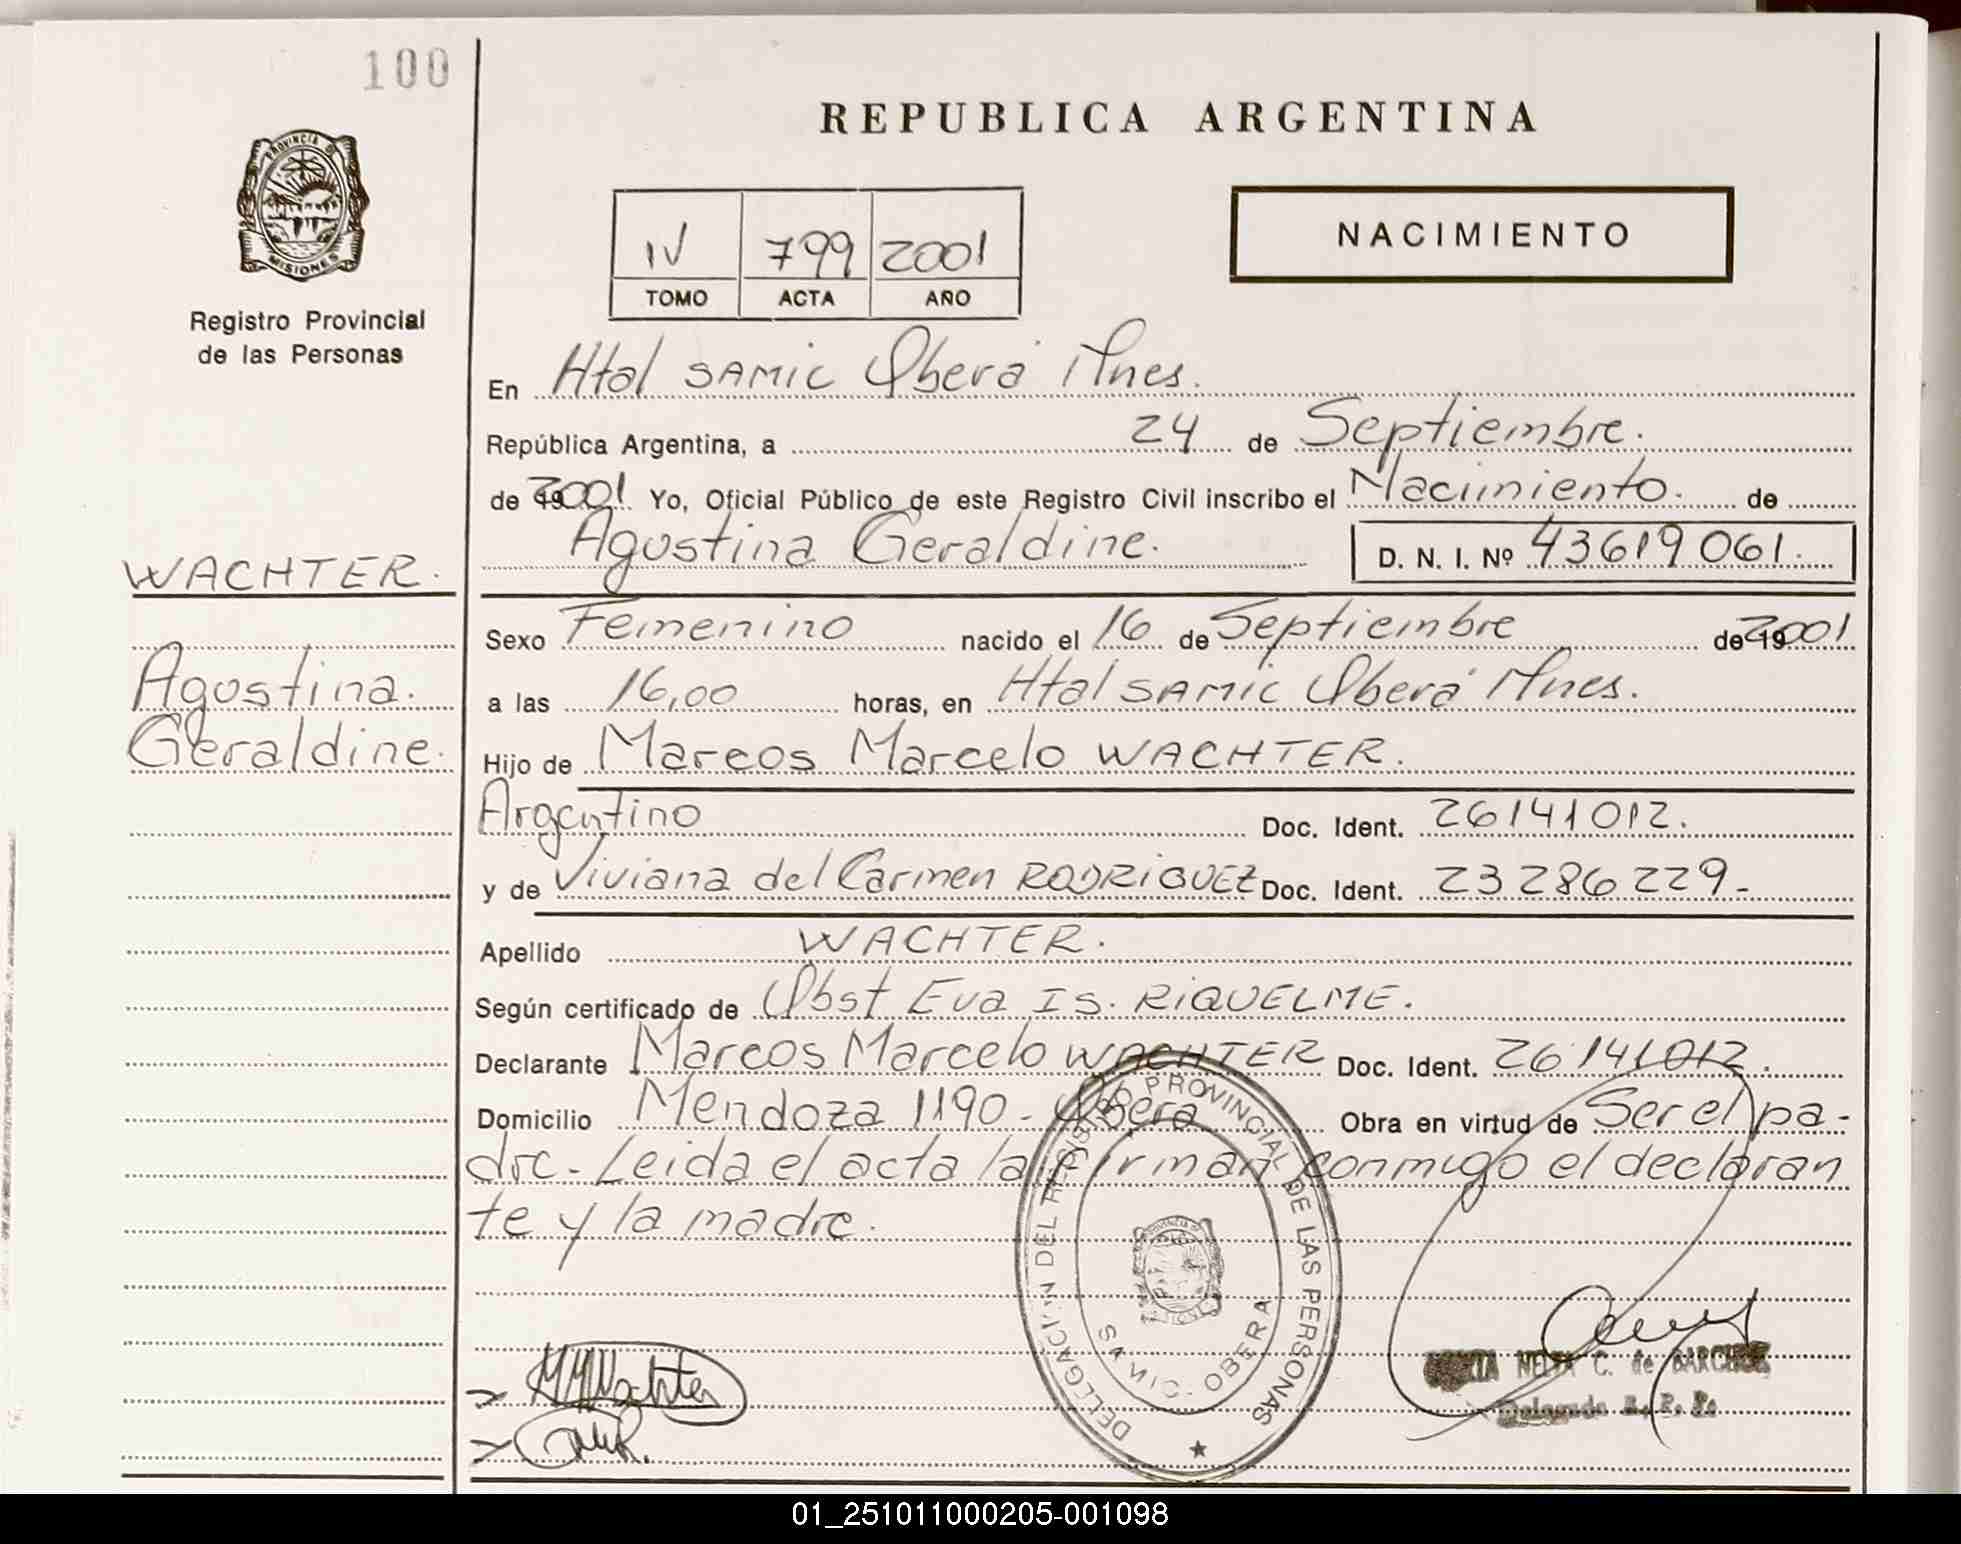 100
REPUBLICA ARGENTINA
PROVINCIA DE
MISIONES
Registro Provincial
de las Personas
IV 799 2001
TOMO ACTA AÑO
NACIMIENTO
En Htal SAMIC Oberá Mnes.
República Argentina, a 24 de Septiembre.
de 2001 Yo, Oficial Público de este Registro Civil inscribo el Nacimiento. de
Agostina Geraldine. D. N. I. Nº 43619061.
WACHTER.
Agostina.
Geraldine.
Sexo Femenino nacido el 16 de Septiembre de 2001
a las 16,00 horas, en Htal SAMIC Oberá Mnes.
Hijo de Marcos Marcelo WACHTER.
Argentino Doc. Ident. 26141012.
y de Viviana del Carmen RODRIGUEZ Doc. Ident. 23286229-
Apellido WACHTER.
Según certificado de Obst Eva IS. RIQUELME.
Declarante Marcos Marcelo WACHTER Doc. Ident. 26141012.
Domicilio Mendoza 1190- Oberá Obra en virtud de Ser el pa-
dre- Leida el acta la firman conmigo el declaran
te y la madre.
DELEGACION DEL REGISTRO PROVINCIAL DE LAS PERSONAS
SAMIC-OBERA
MMWachter
C. de
01_251011000205-001098